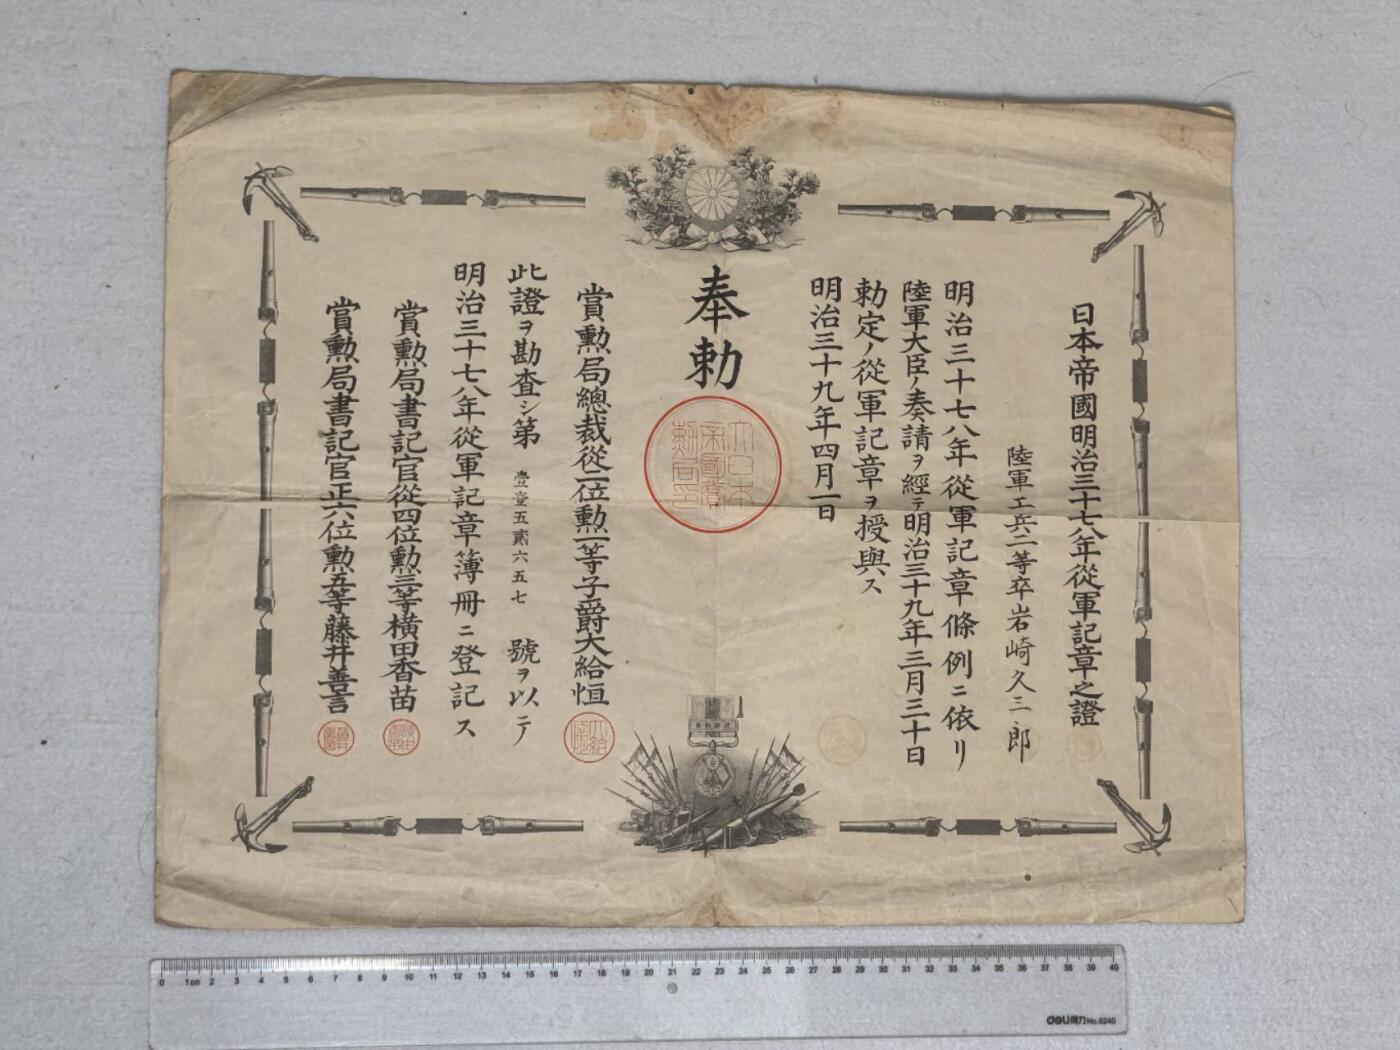 日本帝國明治三十七八年從軍記章之證
陸軍工兵二等卒岩崎久三郎
明治三十七八年從軍記章條例ニ依リ
陸軍大臣ノ奏請ヲ經テ明治三十九年三月三十日
勅定ノ從軍記章ヲ授與ス
明治三十九年四月一日
奉勅
大日本
帝國賞
勲局印
賞勲局總裁從二位勲一等子爵大給恒
此證ヲ勘査シ第壹壹五貳六五七號ヲ以テ
明治三十七八年從軍記章簿冊ニ登記ス
賞勲局書記官從四位勲三等橫田香苗
賞勲局書記官正六位勲五等藤井善言
0 1cm 2 3 4 5 6 7 8 9 10 11 12 13 14 15 16 17 18 19 20 21 22 23 24 25 26 27 28 29 30 31 32 33 34 35 36 37 38 39 40
deli得力 No.6240